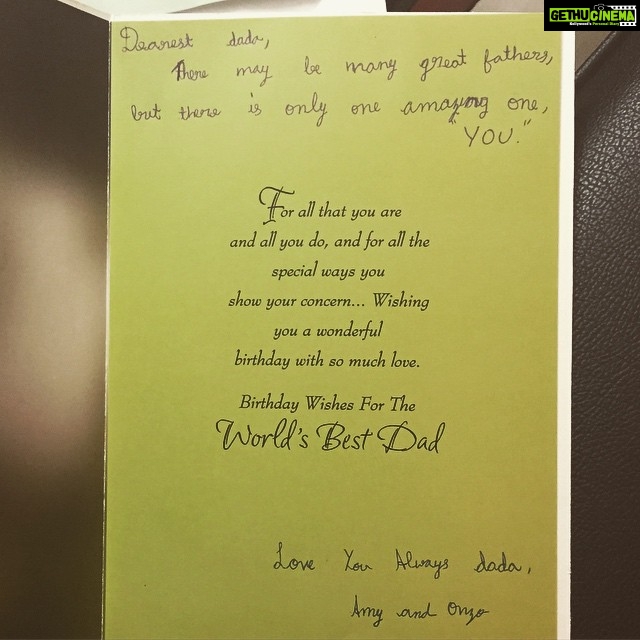 GETHUCINEMA
Kollywood's Personal Diary
Dearest dada,
There may be many great fathers,
but there is only one amazing one,
"YOU."
For all that you are
and all you do, and for all the
special ways you
show your concern... Wishing
you a wonderful
birthday with so much love.
Birthday Wishes For The
World's Best Dad
Love You Always dada,
Amy and Onzo